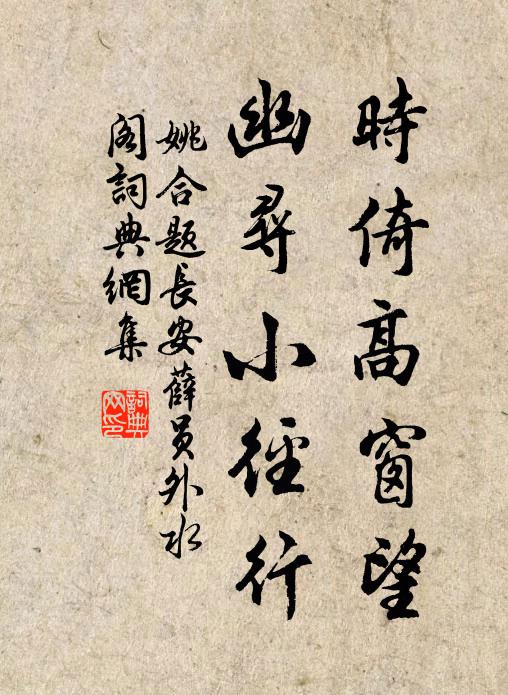 時倚高窗望
幽尋小徑行
姚合題長安薛員外水
閣詞典網集
詞典
网印